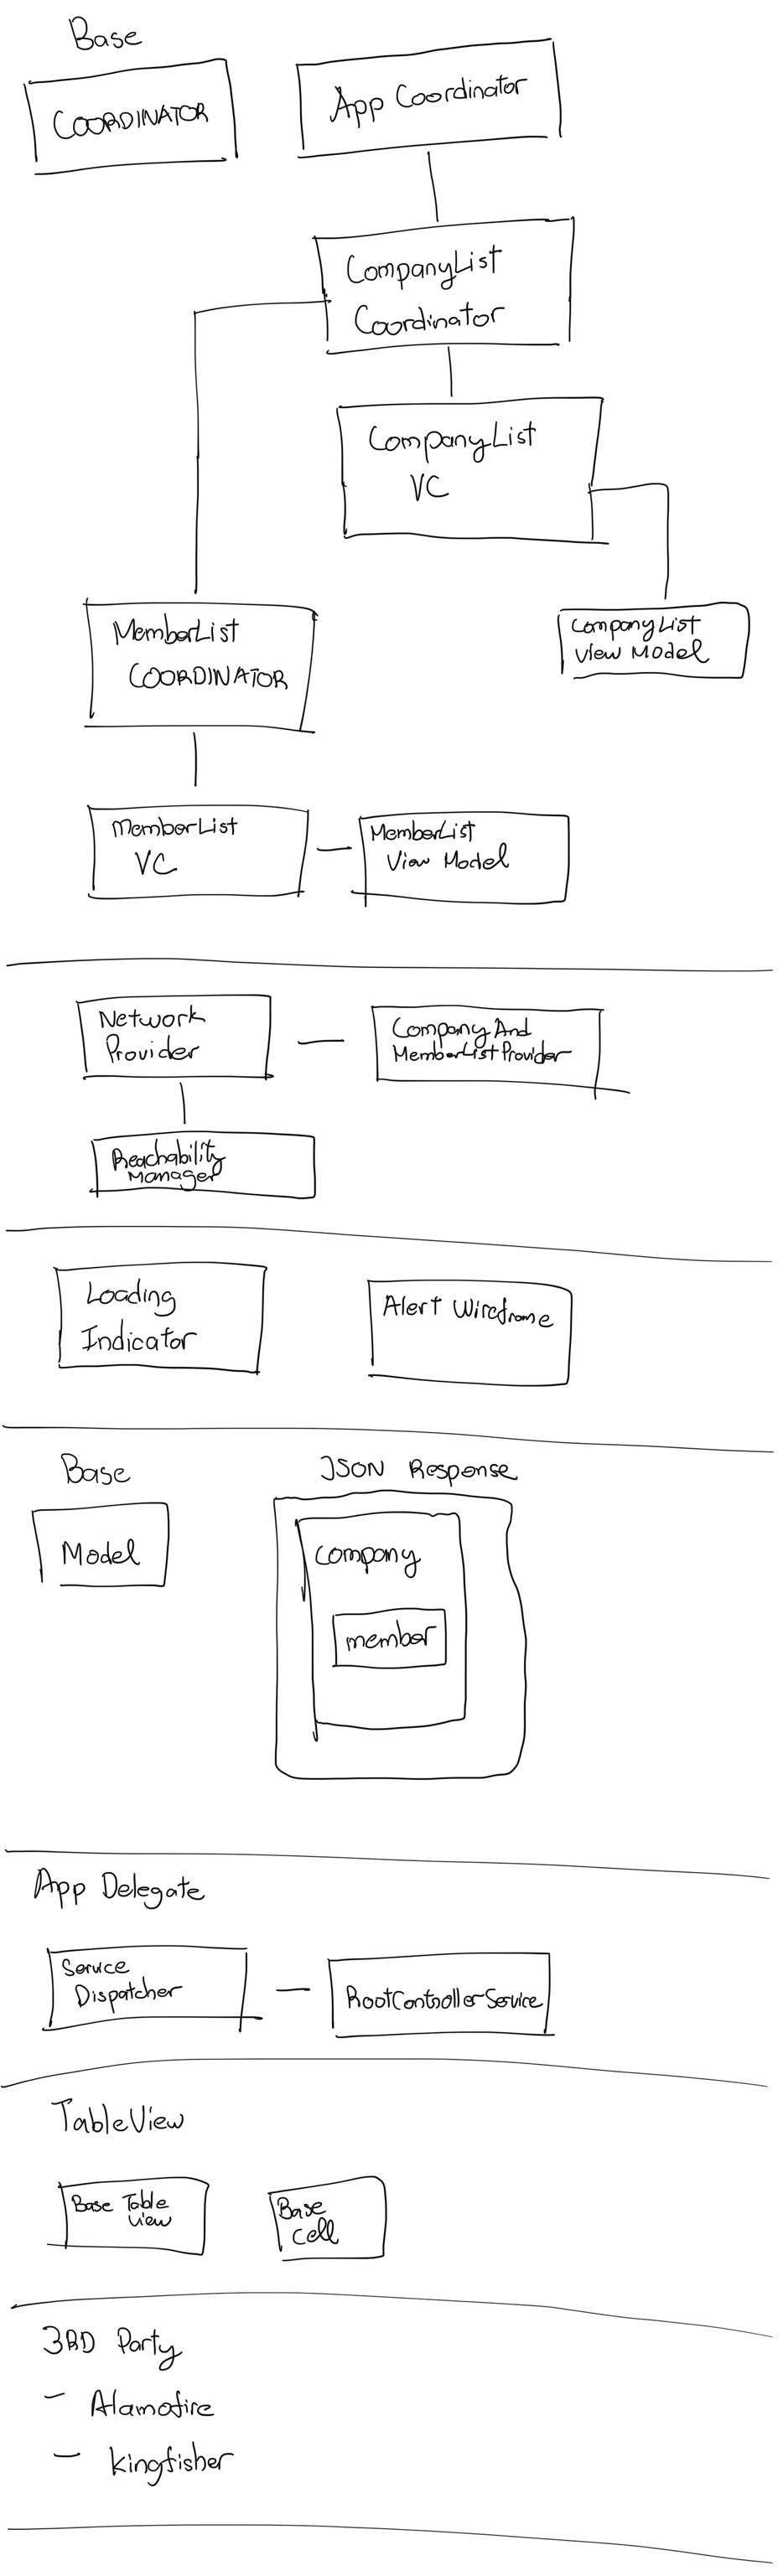 Base
COORDINATOR
App Coordinator
CompanyList
Coordinator
CompanyList
VC
MemberList
COORDINATOR
CompanyList
View Model
MemberList
VC
MemberList
View Model
Network
Provider
Company And
MemberListProvider
Reachability
Manager
Loading
Indicator
Alert Wireframe
Base
Model
JSON Response
Company
member
App Delegate
Service
Dispatcher
RootControllerService
TableView
Base Table
View
Base
Cell
3RD Party
- Alamofire
- kingfisher